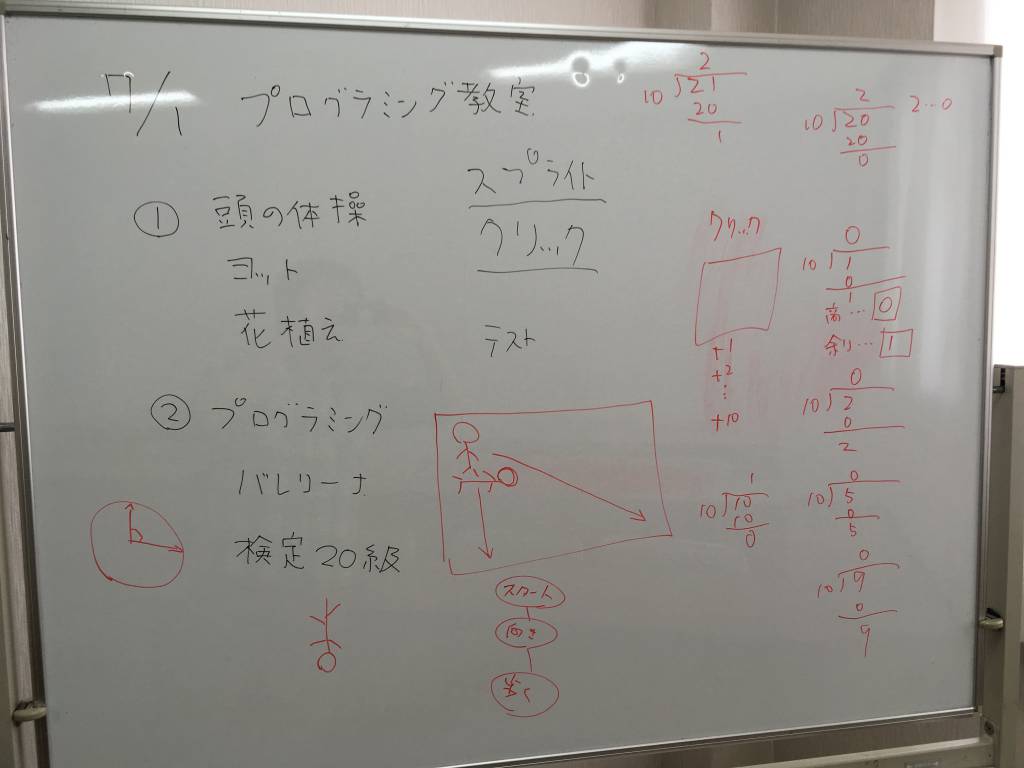 7/1 プログラミング教室
① 頭の体操
ヨット
花植え
② プログラミング
バレリーナ
検定20級
スプライト
クリック
テスト
スタート
向き
歩く
クリック
+1
+2
⋮
+10
2
10)21
20
1
2
10)20 2…0
20
0
0
10)1
0
1
商…0
余り…1
0
10)2
0
2
1
10)10
10
0
0
10)5
0
5
0
10)9
0
9